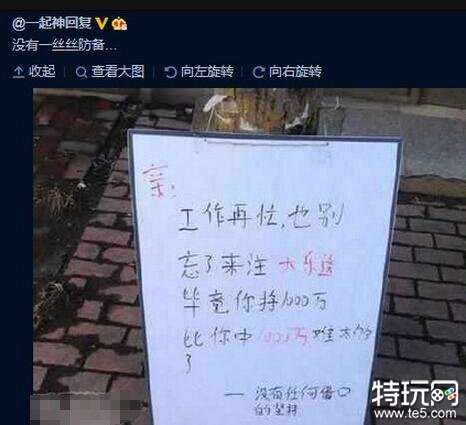 @一起神回复
没有一丝丝防备...
收起 查看大图 向左旋转 向右旋转
亲:
工作再忙,也别
忘了来注大乐透
毕竟你挣1000万
比你中1000万难太多
了
——没有任何借口
的坚持
特玩网
www.te5.com